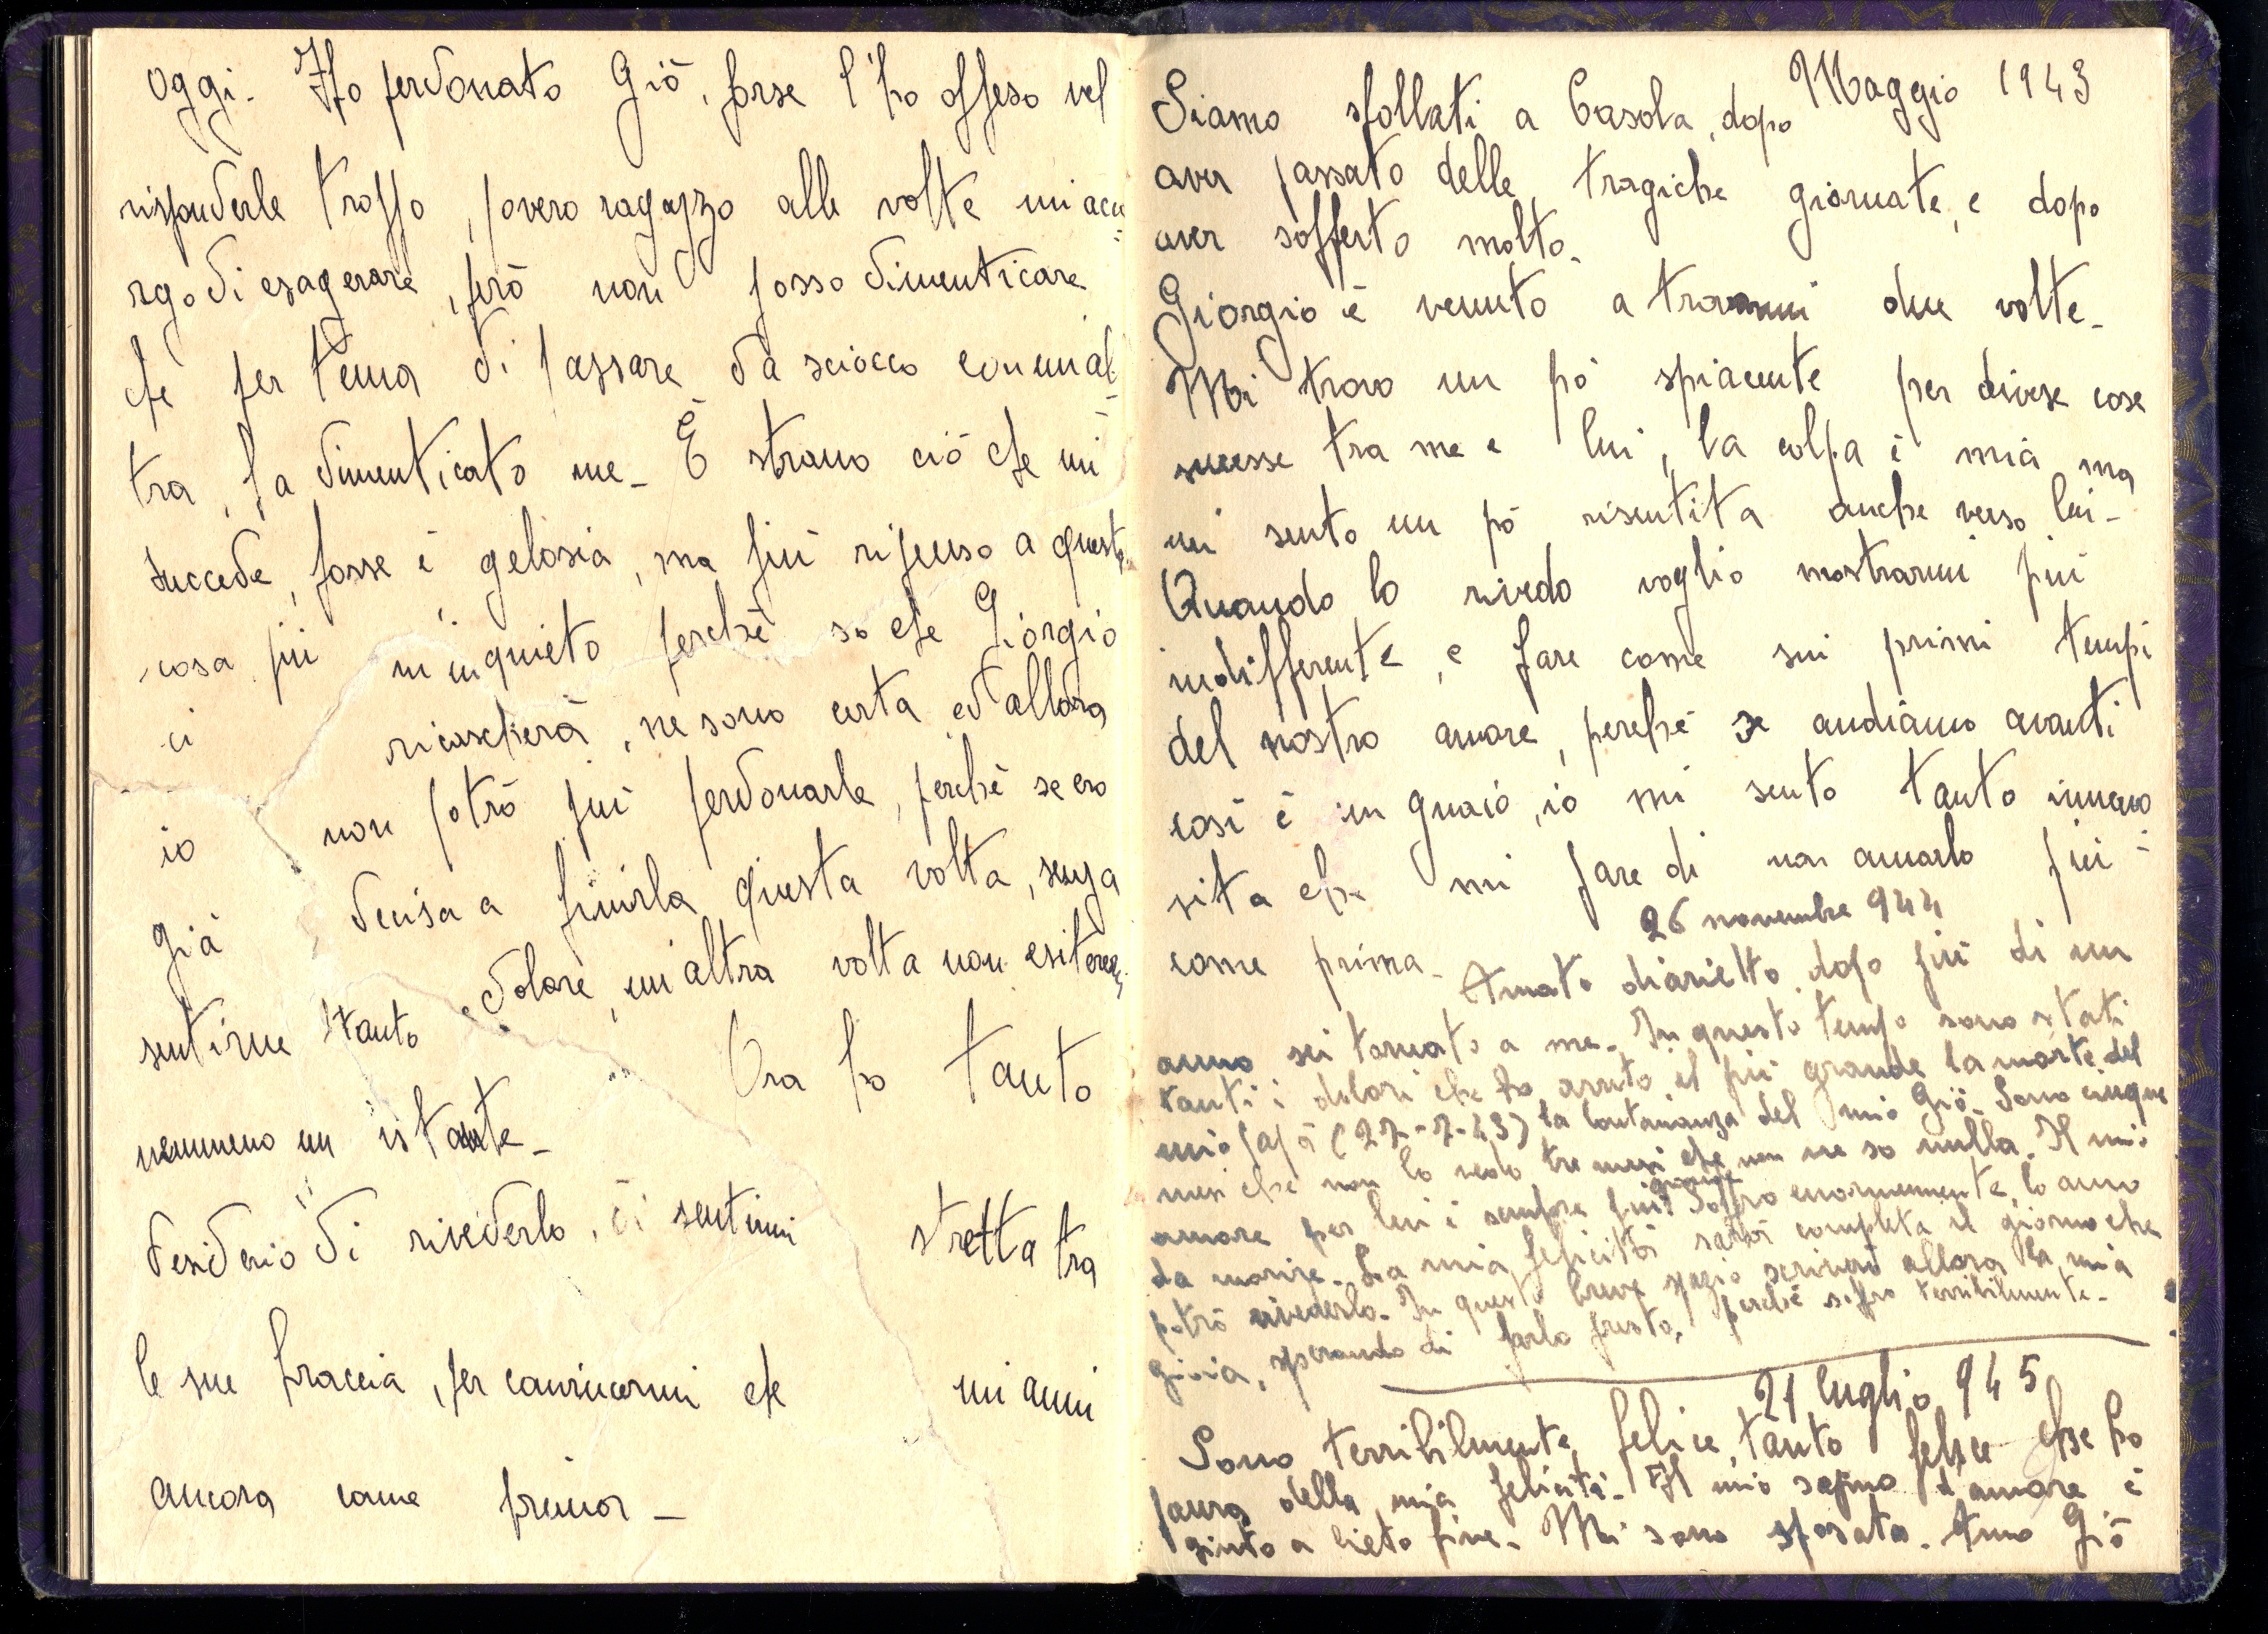 oggi. Ho perdonato Giō, forse l'ho offeso nel
risponderle troppo, povero ragazzo alle volte mi accu=
rgo di esagerare, però non posso dimenticare
che per tema di passare da sciocco con un al=
tra, ha dimenticato me_ È strano ciò che mi
succede, forse è gelosia, ma più ripenso a questa
cosa più m'inquieto perchè so che Giorgio
ci ricascherà, ne sono certa ed allora
io non potrò più perdonarle, perchè se ero
già decisa a finirla questa volta, senza
sentirne tanto dolore, un'altra volta non esiterei
nemmeno un istante_ Ora ho tanto
desiderio di rivederlo, di sentirmi stretta tra
le sue braccia, per convincermi che mi ami
ancora come prima_
Maggio 1943
Siamo sfollati a Casola, dopo
aver passato delle tragiche giornate, e dopo
aver sofferto molto_
Giorgio è venuto a trovarmi due volte_
Mi trovo un pò spiacente per diverse cose
successe tra me e lui, la colpa è mia ma
mi sento un pò risentita anche verso lui_
Quando lo rivedo voglio mostrarmi più
indifferente, e fare come sui primi tempi
del nostro amore, perchè se andiamo avanti
così è un guaio, io mi sento tanto innervo=
sita che mi pare di non amarlo più
come prima_
26 novembre 944
Amato diarietto, dopo più di un
anno sei tornato a me_ In questo tempo sono stati
tanti i dolori che ho avuto il più grande la morte del
mio papà (27-7-43) la lontananza del mio Giō_ Sono cinque
mesi che non lo vedo tre mesi che non ne so nulla. Il mio
amore per lui è sempre più grande Soffro enormemente, lo amo
da morire_ La mia felicità sarà completa il giorno che
potrò rivederlo_ In questo breve spazio scriverò allora la mia
gioia, sperando di farlo presto, perchè soffro terribilmente_
21 luglio 945
Sono terribilmente felice, tanto felice che ho
paura della mia felicità. Il mio sogno d'amore è
giunto a lieto fine_ Mi sono sposata. Amo Giō